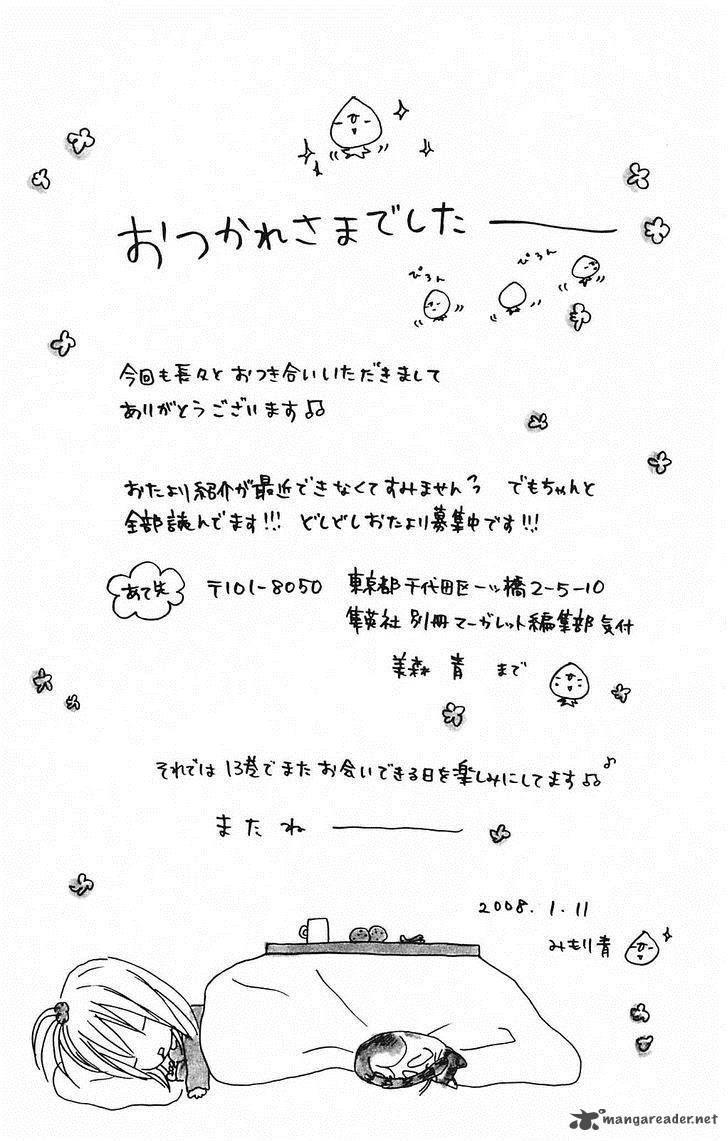 おつかれさまでしたーーー
ぴろん
ぴろん
今回も長々とおつき合いいただきまして
ありがとうございます♫
おたより紹介が最近できなくてすみません　でもちゃんと
全部読んでます!!! どしどしおたより募集中です!!!
あて先
〒101-8050　東京都千代田区一ツ橋2-5-10
集英社 別冊マーガレット編集部 気付
美森 青 まで
それでは13巻でまたお会いできる日を楽しみにしてます♫♪
またねーーー
2008.1.11
みもり青
mangareader.net